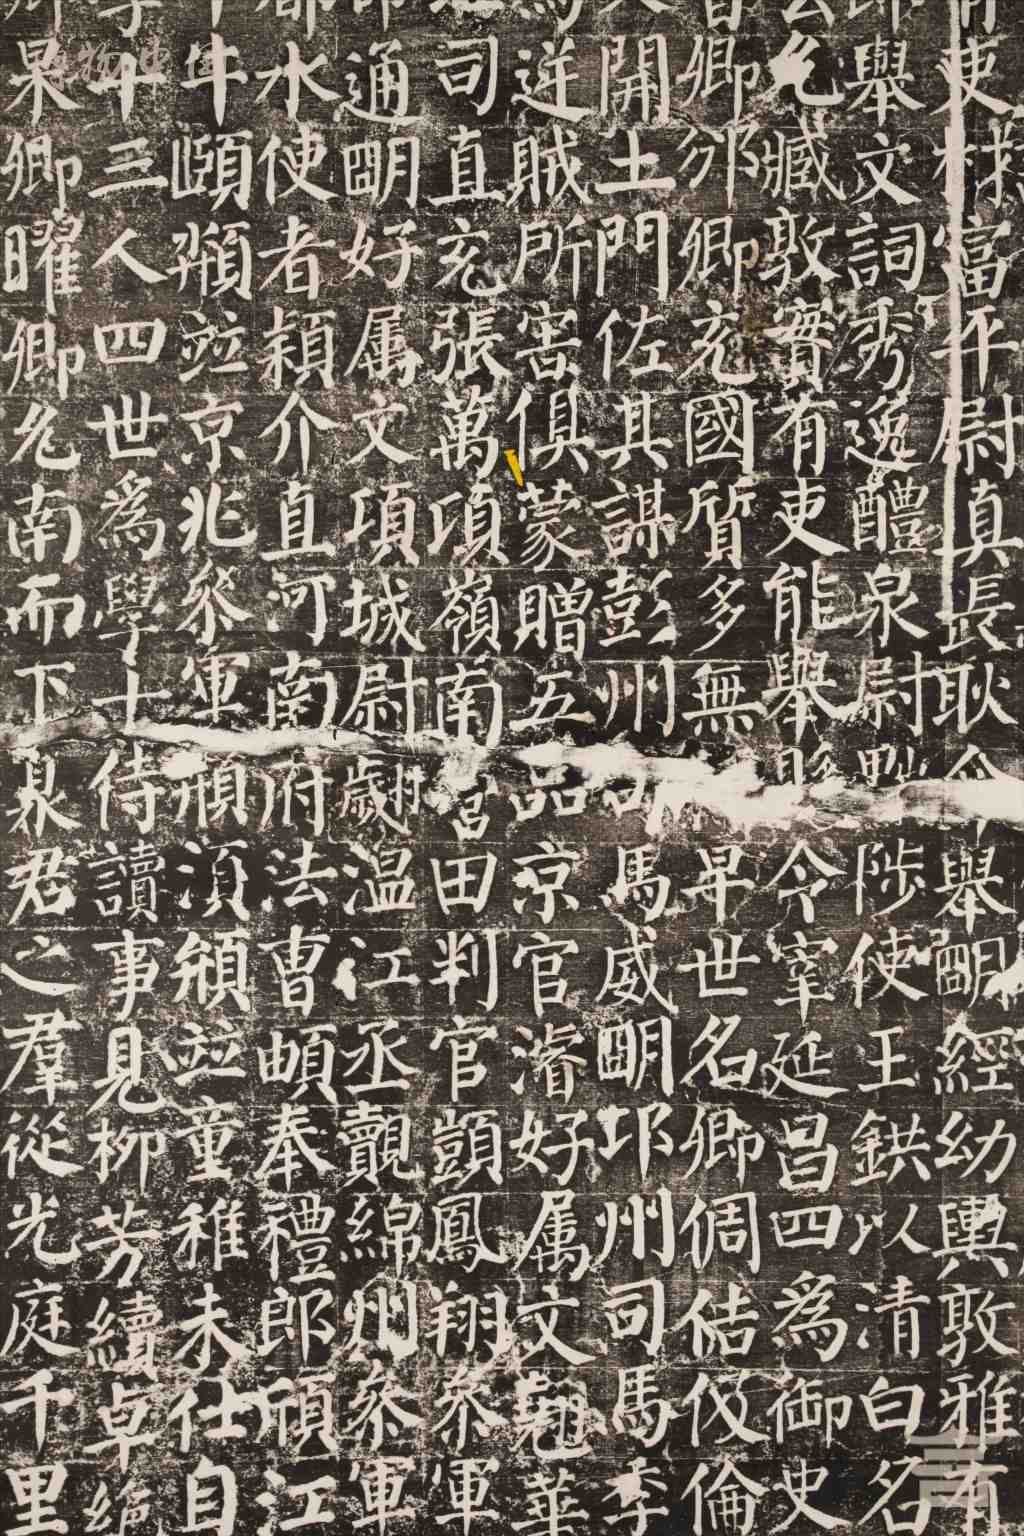 吏材富平尉真長耿介舉明經幼輿敦雅有
舉文詞秀逸醴泉尉黜陟使王鉷以清白名
允臧敦實有吏能舉縣令宰延昌四為御史
卿邠卿充國質多無早世名卿倜佶伋倫
開土門佐其謀彭州司馬威明邛州司馬季
逆賊所害俱蒙贈五品京官濬好屬文翹華
司直充張萬頃嶺南營田判官顗鳳翔參軍
通明好屬文項城尉翽溫江丞覿綿州參軍
水使者穎介直河南府法曹頔奉禮郎頎江
牛頤頫並京兆參軍須並童稚未仕自
十三人四世為學士侍讀事見柳芳續卓絕
杲卿曜卿允南而下臮君之羣從光庭千里